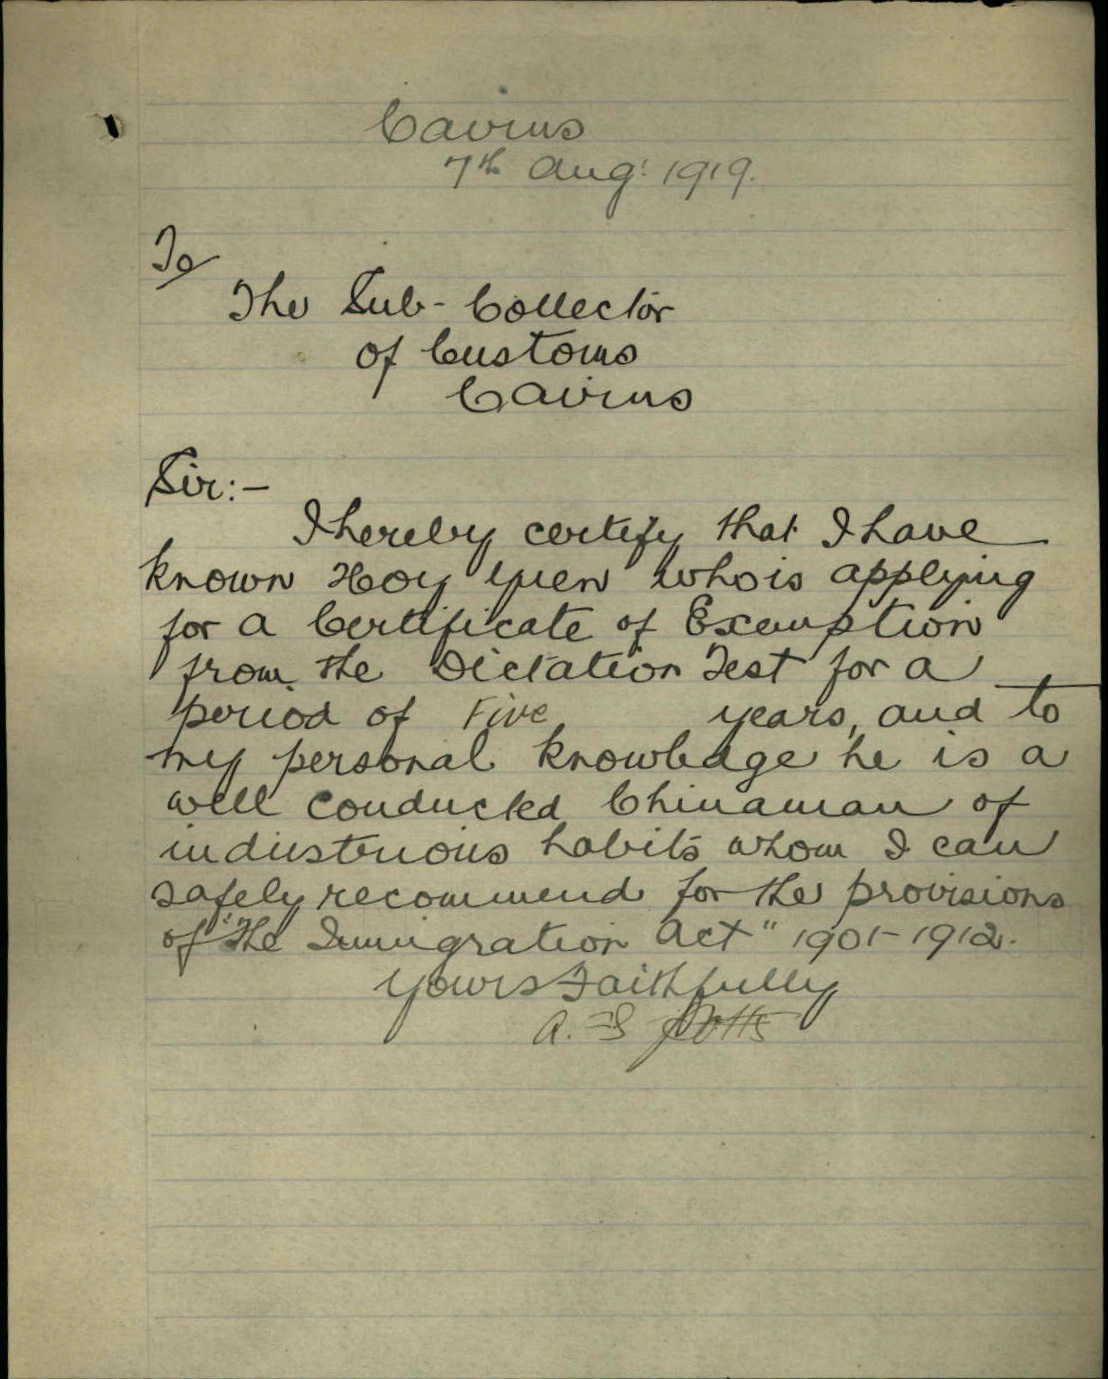 Cairns
7th Aug: 1919.
To
The Sub-Collector
of Customs
Cairns
Sir:-
I hereby certify that I have
known Hoy Yuen who is applying
for a Certificate of Exemption
from the Dictation Test for a
period of Five years, and to
my personal knowledge he is a
well conducted Chinaman of
industrious habits whom I can
safely recommend for the provisions
of "The Immigration Act" 1901-1912.
Yours Faithfully
A.